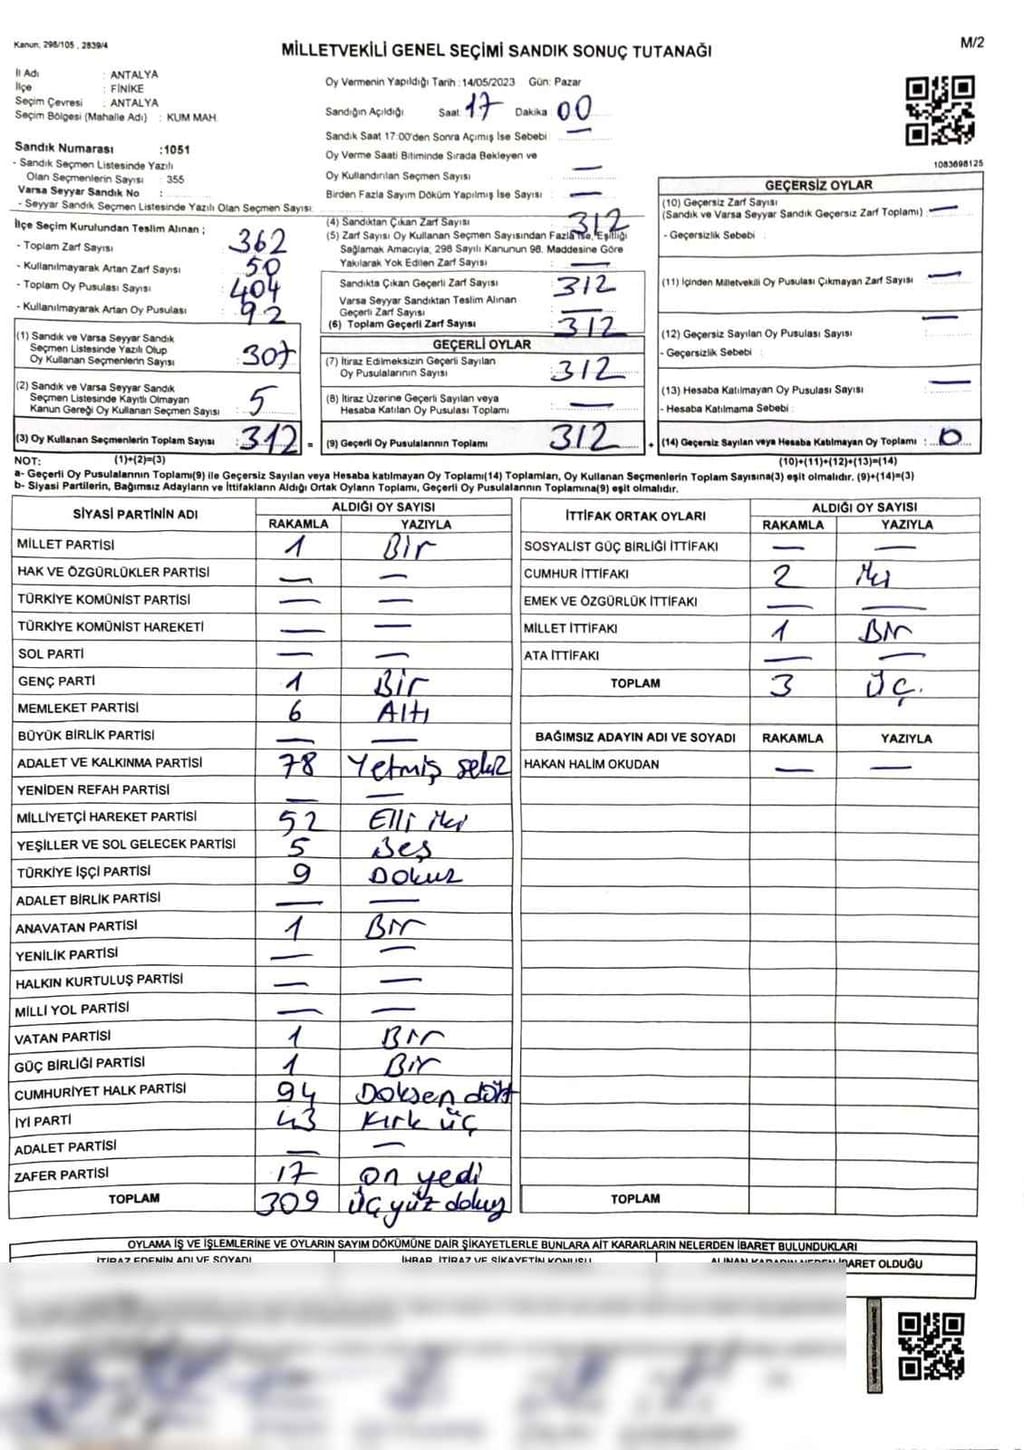 Kanun, 298/105 , 2839/4
MİLLETVEKİLİ GENEL SEÇİMİ SANDIK SONUÇ TUTANAĞI
M/2
İl Adı : ANTALYA
İlçe : FİNİKE
Seçim Çevresi : ANTALYA
Seçim Bölgesi (Mahalle Adı) : KUM MAH.
Sandık Numarası :1051
- Sandık Seçmen Listesinde Yazılı
Olan Seçmenlerin Sayısı : 355
Varsa Seyyar Sandık No :
- Seyyar Sandık Seçmen Listesinde Yazılı Olan Seçmen Sayısı:
Oy Vermenin Yapıldığı Tarih :14/05/2023 Gün: Pazar
Sandığın Açıldığı Saat 17 Dakika 00
Sandık Saat 17:00'den Sonra Açımış İse Sebebi —
Oy Verme Saati Bitiminde Sırada Bekleyen ve
Oy Kullandırılan Seçmen Sayısı —
Birden Fazla Sayım Döküm Yapılmış İse Sayısı —
1083698125
İlçe Seçim Kurulundan Teslim Alınan ;
- Toplam Zarf Sayısı 362
- Kullanılmayarak Artan Zarf Sayısı 50
- Toplam Oy Pusulası Sayısı 404
- Kullanılmayarak Artan Oy Pusulası 92
(1) Sandık ve Varsa Seyyar Sandık
Seçmen Listesinde Yazılı Olup
Oy Kullanan Seçmenlerin Sayısı 307
(2) Sandık ve Varsa Seyyar Sandık
Seçmen Listesinde Kayıtlı Olmayan
Kanun Gereği Oy Kullanan Seçmen Sayısı 5
(3) Oy Kullanan Seçmenlerin Toplam Sayısı : 312 =
(4) Sandıktan Çıkan Zarf Sayısı 312
(5) Zarf Sayısı Oy Kullanan Seçmen Sayısından Fazla İse, Eşitliği
Sağlamak Amacıyla, 298 Sayılı Kanunun 98. Maddesine Göre
Yakılarak Yok Edilen Zarf Sayısı —
Sandıkta Çıkan Geçerli Zarf Sayısı 312
Varsa Seyyar Sandıktan Teslim Alınan
Geçerli Zarf Sayısı —
(6) Toplam Geçerli Zarf Sayısı 312
GEÇERLİ OYLAR
(7) İtiraz Edilmeksizin Geçerli Sayılan
Oy Pusulalarının Sayısı 312
(8) İtiraz Üzerine Geçerli Sayılan veya
Hesaba Katılan Oy Pusulası Toplamı —
(9) Geçerli Oy Pusulalarının Toplamı 312 +
GEÇERSİZ OYLAR
(10) Geçersiz Zarf Sayısı
(Sandık ve Varsa Seyyar Sandık Geçersiz Zarf Toplamı) : —
- Geçersizlik Sebebi :
(11) İçinden Milletvekili Oy Pusulası Çıkmayan Zarf Sayısı —
(12) Geçersiz Sayılan Oy Pusulası Sayısı —
- Geçersizlik Sebebi :
(13) Hesaba Katılmayan Oy Pusulası Sayısı —
- Hesaba Katılmama Sebebi :
(14) Geçersiz Sayılan veya Hesaba Katılmayan Oy Toplamı : 0
NOT: (1)+(2)=(3)
(10)+(11)+(12)+(13)=(14)
a- Geçerli Oy Pusulalarının Toplamı(9) ile Geçersiz Sayılan veya Hesaba katılmayan Oy Toplamı(14) Toplamları, Oy Kullanan Seçmenlerin Toplam Sayısına(3) eşit olmalıdır. (9)+(14)=(3)
b- Siyasi Partilerin, Bağımsız Adayların ve İttifakların Aldığı Ortak Oyların Toplamı, Geçerli Oy Pusulalarının Toplamına(9) eşit olmalıdır.
SİYASİ PARTİNİN ADI ALDIĞI OY SAYISI
RAKAMLA YAZIYLA
MİLLET PARTİSİ 1 Bir
HAK VE ÖZGÜRLÜKLER PARTİSİ — —
TÜRKİYE KOMÜNİST PARTİSİ — —
TÜRKİYE KOMÜNİST HAREKETİ — —
SOL PARTİ — —
GENÇ PARTİ 1 Bir
MEMLEKET PARTİSİ 6 Altı
BÜYÜK BİRLİK PARTİSİ — —
ADALET VE KALKINMA PARTİSİ 78 Yetmiş sekiz
YENİDEN REFAH PARTİSİ — —
MİLLİYETÇİ HAREKET PARTİSİ 52 Elli iki
YEŞİLLER VE SOL GELECEK PARTİSİ 5 Beş
TÜRKİYE İŞÇİ PARTİSİ 9 Dokuz
ADALET BİRLİK PARTİSİ — —
ANAVATAN PARTİSİ 1 Bir
YENİLİK PARTİSİ — —
HALKIN KURTULUŞ PARTİSİ — —
MİLLİ YOL PARTİSİ — —
VATAN PARTİSİ 1 Bir
GÜÇ BİRLİĞİ PARTİSİ 1 Bir
CUMHURİYET HALK PARTİSİ 94 Doksen dört
İYİ PARTİ 43 Kırk üç
ADALET PARTİSİ — —
ZAFER PARTİSİ 17 on yedi
TOPLAM 309 üç yüz dokuz
İTTİFAK ORTAK OYLARI ALDIĞI OY SAYISI
RAKAMLA YAZIYLA
SOSYALİST GÜÇ BİRLİĞİ İTTİFAKI — —
CUMHUR İTTİFAKI 2 iki
EMEK VE ÖZGÜRLÜK İTTİFAKI — —
MİLLET İTTİFAKI 1 Bir
ATA İTTİFAKI — —
TOPLAM 3 üç.
BAĞIMSIZ ADAYIN ADI VE SOYADI RAKAMLA YAZIYLA
HAKAN HALİM OKUDAN — —
TOPLAM
OYLAMA İŞ VE İŞLEMLERİNE VE OYLARIN SAYIM DÖKÜMÜNE DAİR ŞİKAYETLERLE BUNLARA AİT KARARLARIN NELERDEN İBARET BULUNDUKLARI
İTİRAZ EDENİN ADI VE SOYADI İHBAR, İTİRAZ VE ŞİKAYETİN KONUSU ALINAN KARARIN NEDEN İBARET OLDUĞU